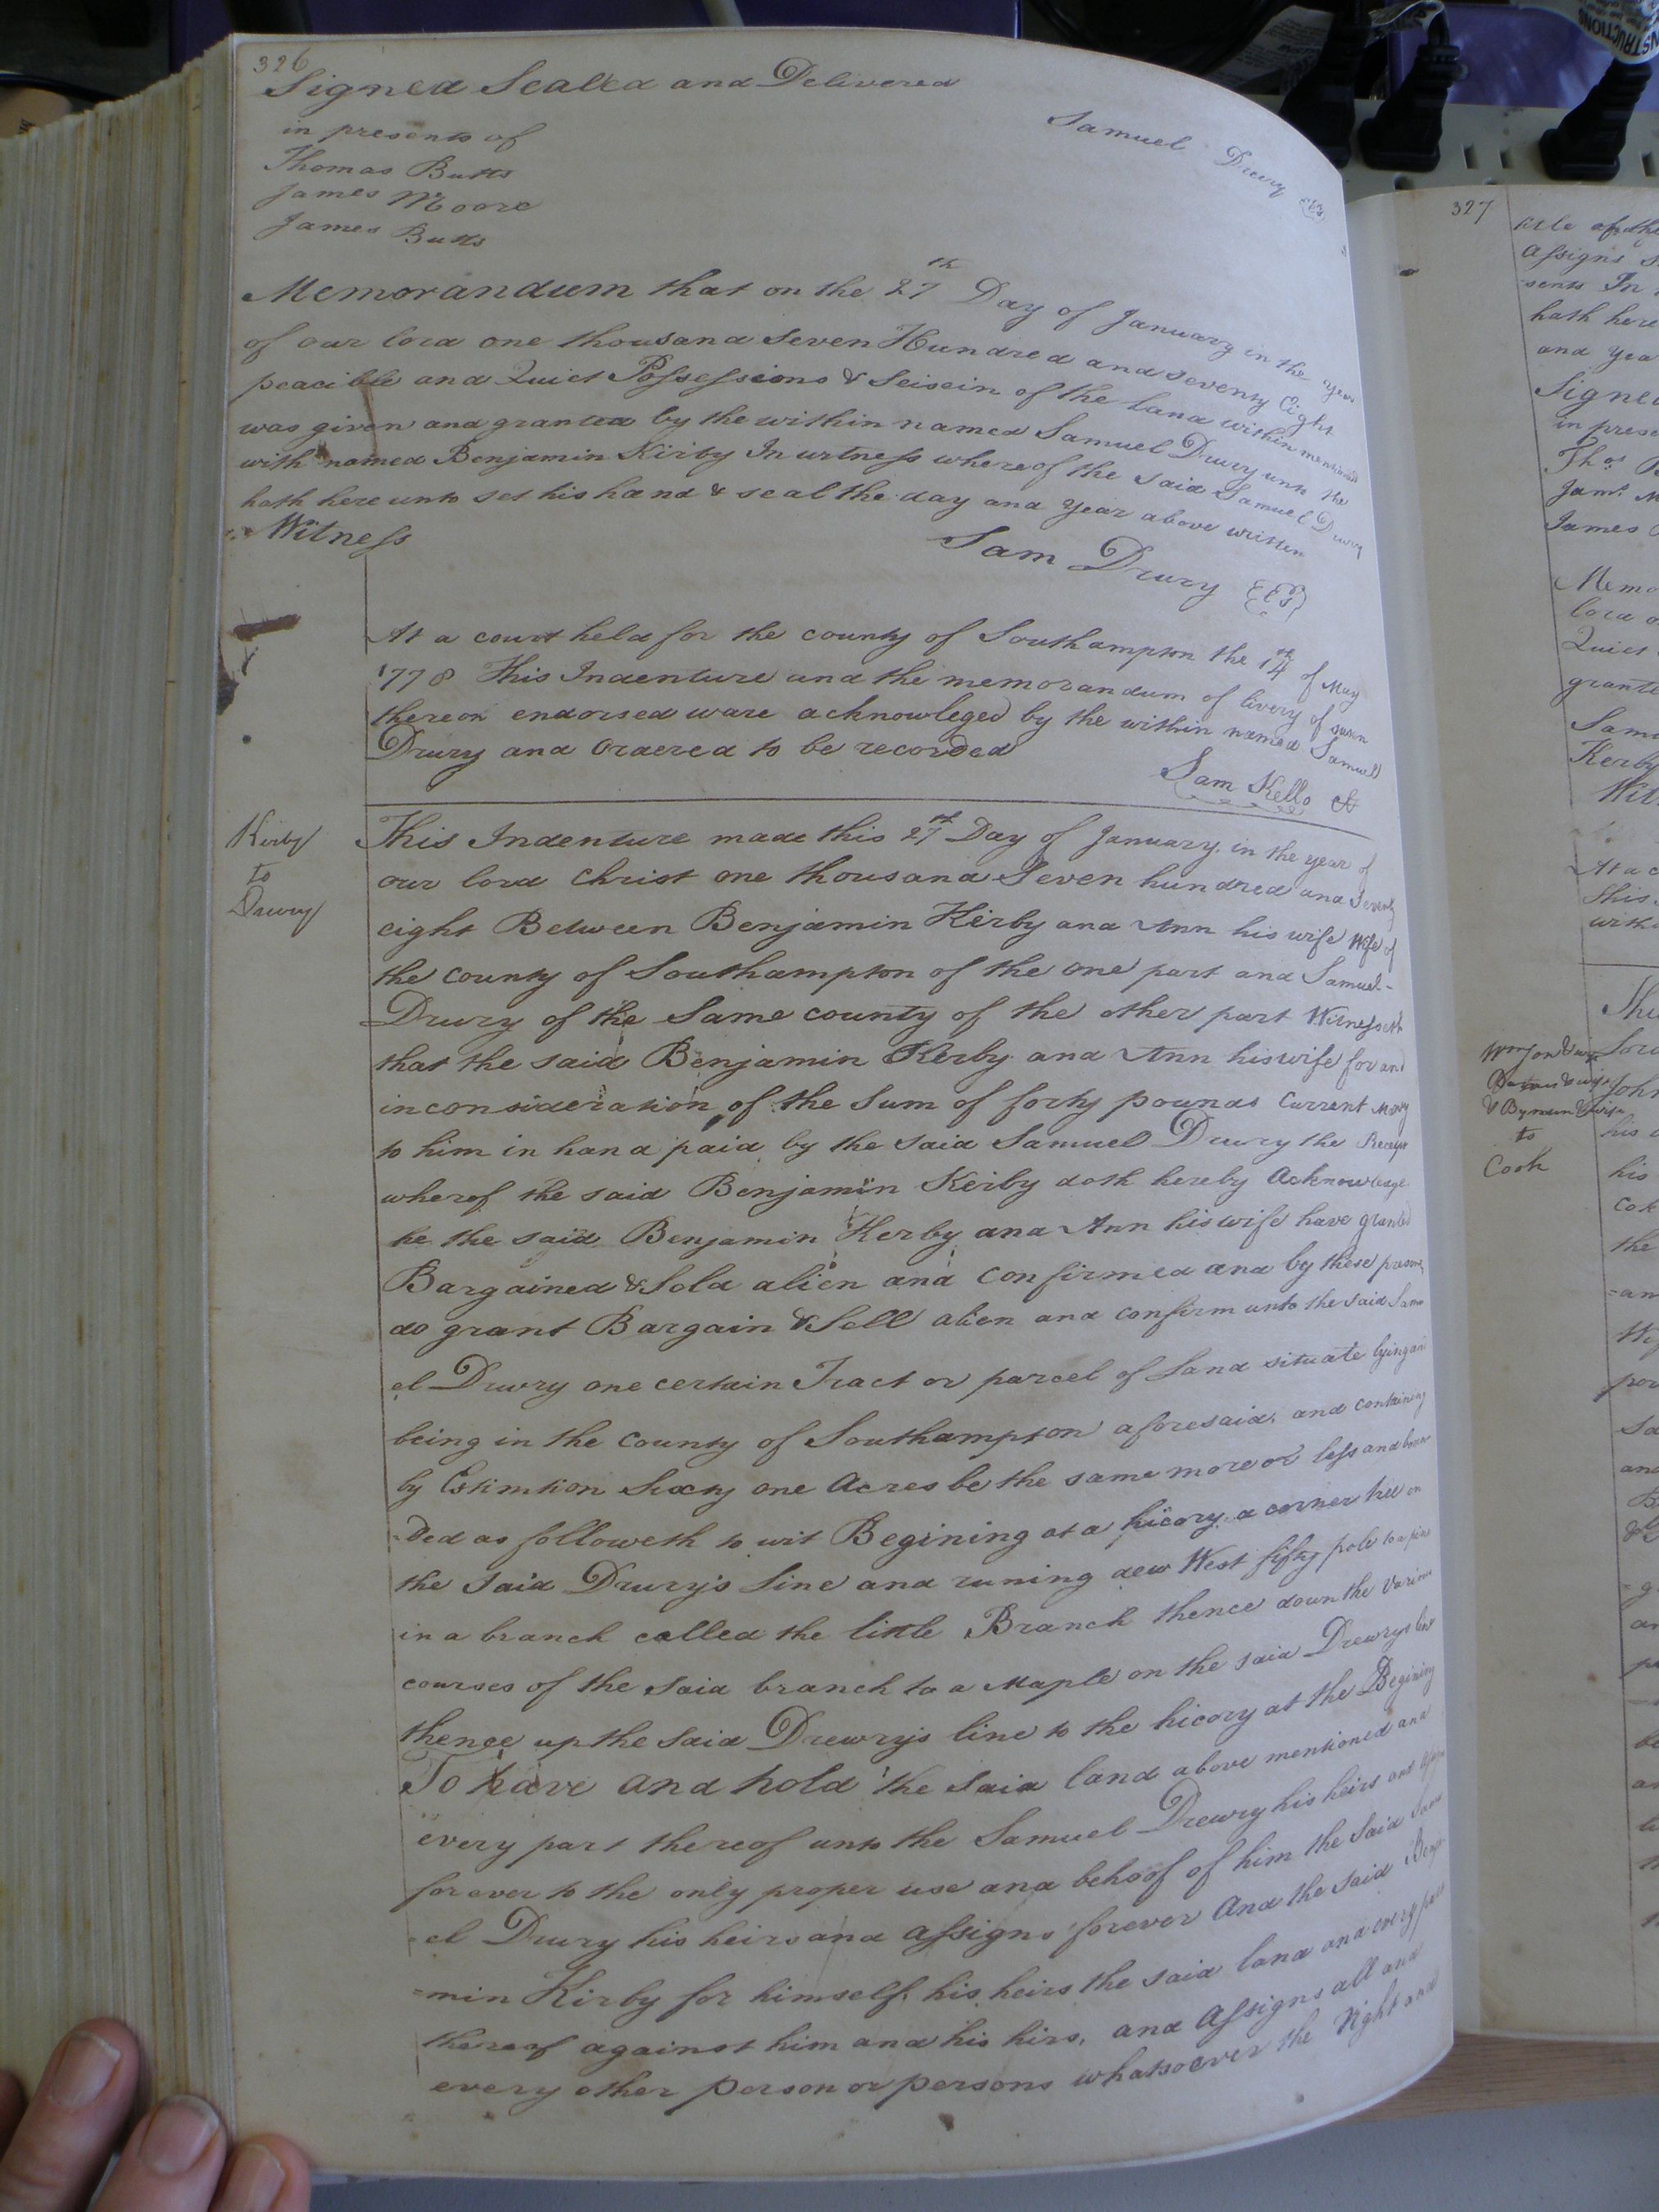 326
Signed Sealed and Delivered
in presents of
Thomas Butts
James Moore
James Butts
Samuel Drury
Memorandum that on the 27th Day of January in the year
of our lord one thousand seven Hundred and seventy Eight
peacible and Quiet Possessions & Seisein of the land within mentioned
was given and granted by the within named Samuel Drury unto the
with named Benjamin Kirby In witness whereof the said Samuel Drury
hath here unto set his hand & seal the day and year above written
Witness
Sam Drury
At a court held for the county of Southampton the 14th of May
1778 This Indenture and the memorandum of livery of
thereon endorsed ware acknowleged by the within named Samuel
Drury and ordered to be recorded
Sam Kello
Kirby
to
Drury
This Indenture made this 27th Day of January in the year of
our lord Christ one thousand Seven hundred and Seventy
eight Between Benjamin Kerby and Ann his wife Wife of
the county of Southampton of the one part and Samuel-
Drury of the Same county of the other part Witnesseth
that the said Benjamin Kerby and Ann his wife for and
in consideration of the Sum of forty pounds Current Mony
to him in hand paid by the said Samuel Drury the Receipt
wherof the said Benjamin Kerby doth hereby Acknowlege
he the said Benjamin Kerby and Ann his wife have granted
Bargained & Sold alien and confirmed and by these
do grant Bargain & Sell alien and confirm unto the said Samu
el Drury one certain Tract or parcel of Land situate lying and
being in the county of Southampton aforesaid and containing
by Estimtion Sixty one Acres be the same more or less and boun
-ded as followeth to wit Begining at a hicory a corner tree on
the said Drury's line and runing dew West fifty pole to a pine
in a branch called the little Branch thence down the various
courses of the said branch to a Maple on the said Drewrys line
thence up the said Drewry's line to the hicory at the Begining
To have and hold the said land above mentioned and
every part thereof unto the Samuel Drewry his heirs and
for ever to the only proper use and behoof of him the said Samu
-el Drury his heirs and assigns forever And the said Benja
-min Kirby for himself his heirs the said land and every part
thereof against him and his hirs, and Assigns all and
every other Person or persons whatsoever the right and
327
assigns
sents In
hath here
and yea
Signed
in prese
Thos B
James
Memo
Quiet
grante
Sam
Kerby
Wit
At a c
This
with
to
Cook
John
his
his
the